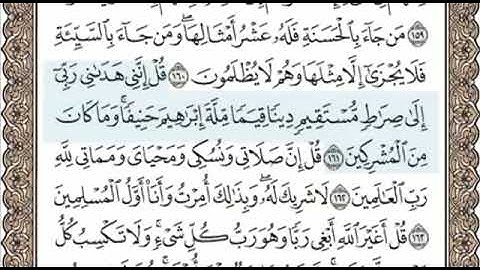 ١٥٩ مَن جَآءَ بِالْحَسَنَةِ فَلَهُۥ عَشْرُ أَمْثَالِهَا ۖ وَمَن جَآءَ بِالسَّيِّئَةِ
فَلَا يُجْزَىٰٓ إِلَّا مِثْلَهَا وَهُمْ لَا يُظْلَمُونَ ١٦٠ قُلْ إِنَّنِى هَدَىٰنِى رَبِّىٓ
إِلَىٰ صِرَٰطٍ مُّسْتَقِيمٍ دِينًا قِيَمًا مِّلَّةَ إِبْرَٰهِيمَ حَنِيفًا ۚ وَمَا كَانَ
مِنَ الْمُشْرِكِينَ ١٦١ قُلْ إِنَّ صَلَاتِى وَنُسُكِى وَمَحْيَاىَ وَمَمَاتِى لِلَّهِ
رَبِّ الْعَٰلَمِينَ ١٦٢ لَا شَرِيكَ لَهُۥ ۖ وَبِذَٰلِكَ أُمِرْتُ وَأَنَا۠ أَوَّلُ الْمُسْلِمِينَ
١٦٣ قُلْ أَغَيْرَ اللَّهِ أَبْغِى رَبًّا وَهُوَ رَبُّ كُلِّ شَىْءٍ ۚ وَلَا تَكْسِبُ كُلُّ